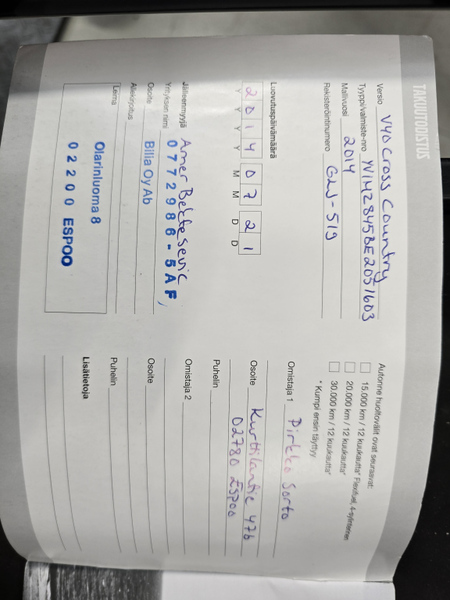 TAKUUTODISTUS
Versio V40 Cross Country
Tyyppi/valmiste-nro YV1MZ2845BE2051603
Mallivuosi 2014
Rekisteröintinumero GLJ-519
Luovutuspäivämäärä
2 0 1 4 0 7 2 1
Y Y Y Y M M D D
Jälleenmyyjä Amer Bektesevic
0772986-5AF,
Yrityksen nimi
Billia Oy Ab
Osoite
Allekirjoitus
Leima
Olarinluoma 8
02200 ESPOO
Autonne huoltovälit ovat seuraavat:
15.000 km / 12 kuukautta* Flexifuel, 4-sylinterinen
20.000 km / 12 kuukautta*
30.000 km / 12 kuukautta*
* Kumpi ensin täyttyy
Omistaja 1 Pirkko Sorto
Osoite Kurttilantie 47b
02780 Espoo
Puhelin
Omistaja 2
Osoite
Puhelin
Lisätietoja